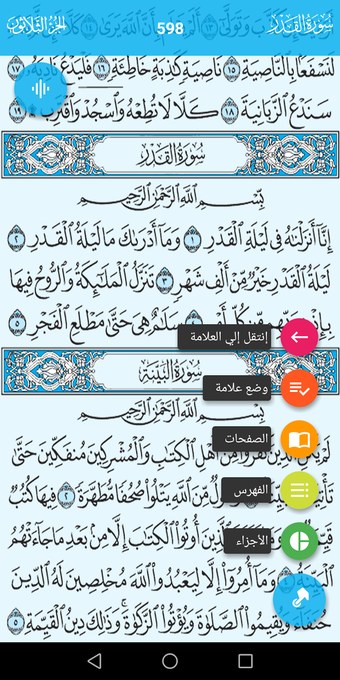 سُورَةُ القَدْرِ 598 الجُزْءُ الثَّلَاثُونَ
لَنَسْفَعًۢا بِٱلنَّاصِيَةِ ١٥ نَاصِيَةٍ كَٰذِبَةٍ خَاطِئَةٍ ١٦ فَلْيَدْعُ نَادِيَهُۥ ١٧
سَنَدْعُ ٱلزَّبَانِيَةَ ١٨ كَلَّا لَا تُطِعْهُ وَٱسْجُدْ وَٱقْتَرِب ١٩
سُورَةُ القَدْرِ
بِسْمِ ٱللَّهِ ٱلرَّحْمَٰنِ ٱلرَّحِيمِ
إِنَّآ أَنزَلْنَٰهُ فِي لَيْلَةِ ٱلْقَدْرِ ١ وَمَآ أَدْرَىٰكَ مَا لَيْلَةُ ٱلْقَدْرِ ٢
لَيْلَةُ ٱلْقَدْرِ خَيْرٌ مِّنْ أَلْفِ شَهْرٍ ٣ تَنَزَّلُ ٱلْمَلَٰٓئِكَةُ وَٱلرُّوحُ فِيهَا
بِإِذْنِ رَبِّهِم مِّن كُلِّ أَمْرٍ ٤ سَلَٰمٌ هِيَ حَتَّىٰ مَطْلَعِ ٱلْفَجْرِ ٥
إنتقل إلي العلامة
سُورَةُ البَيِّنَةِ
وضع علامة
بِسْمِ ٱللَّهِ ٱلرَّحْمَٰنِ ٱلرَّحِيمِ
الصفحات
لَمْ يَكُنِ ٱلَّذِينَ كَفَرُوا۟ مِنْ أَهْلِ ٱلْكِتَٰبِ وَٱلْمُشْرِكِينَ مُنفَكِّينَ حَتَّىٰ
الفهرس
رَسُولٌ مِّنَ ٱللَّهِ يَتْلُوا۟ صُحُفًا مُّطَهَّرَةً ٢ فِيهَا كُتُبٌ
الأجزاء
ٱلَّذِينَ أُوتُوا۟ ٱلْكِتَٰبَ إِلَّا مِنۢ بَعْدِ مَا جَآءَتْهُمُ
ٱلْبَيِّنَةُ ٤ وَمَآ أُمِرُوٓا۟ إِلَّا لِيَعْبُدُوا۟ ٱللَّهَ مُخْلِصِينَ لَهُ ٱلدِّينَ
حُنَفَآءَ وَيُقِيمُوا۟ ٱلصَّلَوٰةَ وَيُؤْتُوا۟ ٱلزَّكَوٰةَ وَذَٰلِكَ دِينُ ٱلْقَيِّمَةِ ٥